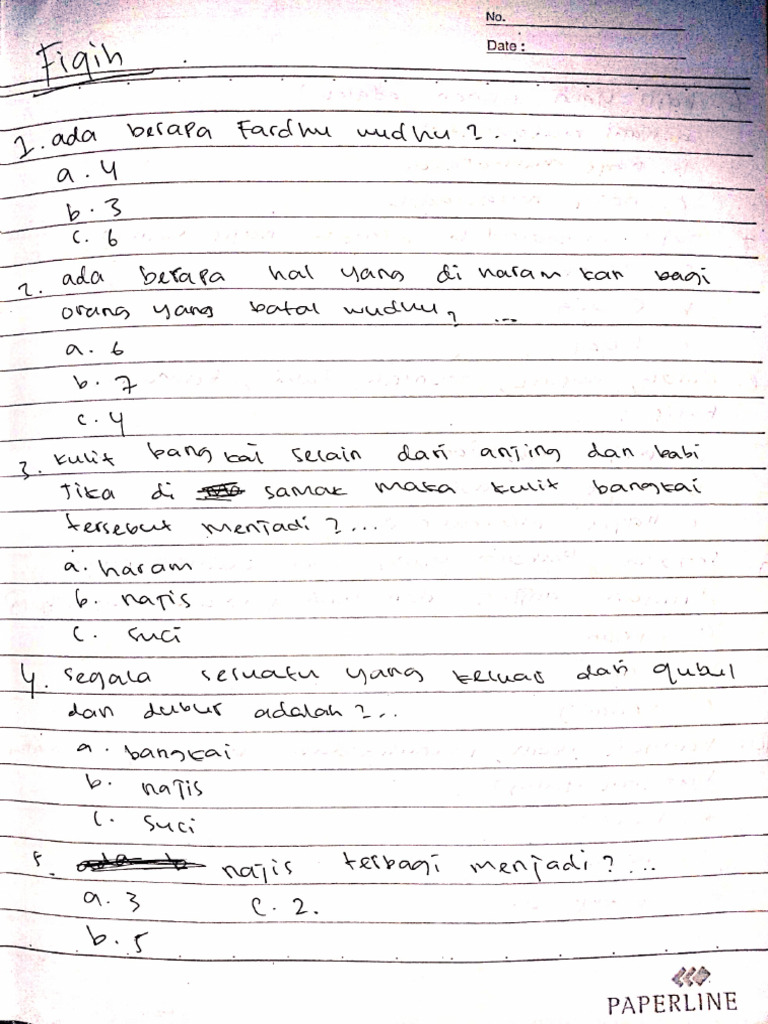 No.
Date :
Fiqih
1. ada berapa Fardhu wudhu ? ...
a. 4
b. 3
c. 6
2. ada berapa hal yang di haram kan bagi
orang yang batal wudhu ? ...
a. 6
b. 7
c. 4
3. kulit bangkai selain dari anjing dan babi
Jika di samak maka kulit bangkai
tersebut menjadi ? ...
a. haram
b. najis
c. suci
4. segala sesuatu yang keluar dari qubul
dan dubur adalah ? ...
a. bangkai
b. najis
c. suci
5. najis terbagi menjadi ? ...
a. 3 c. 2.
b. 5
PAPERLINE